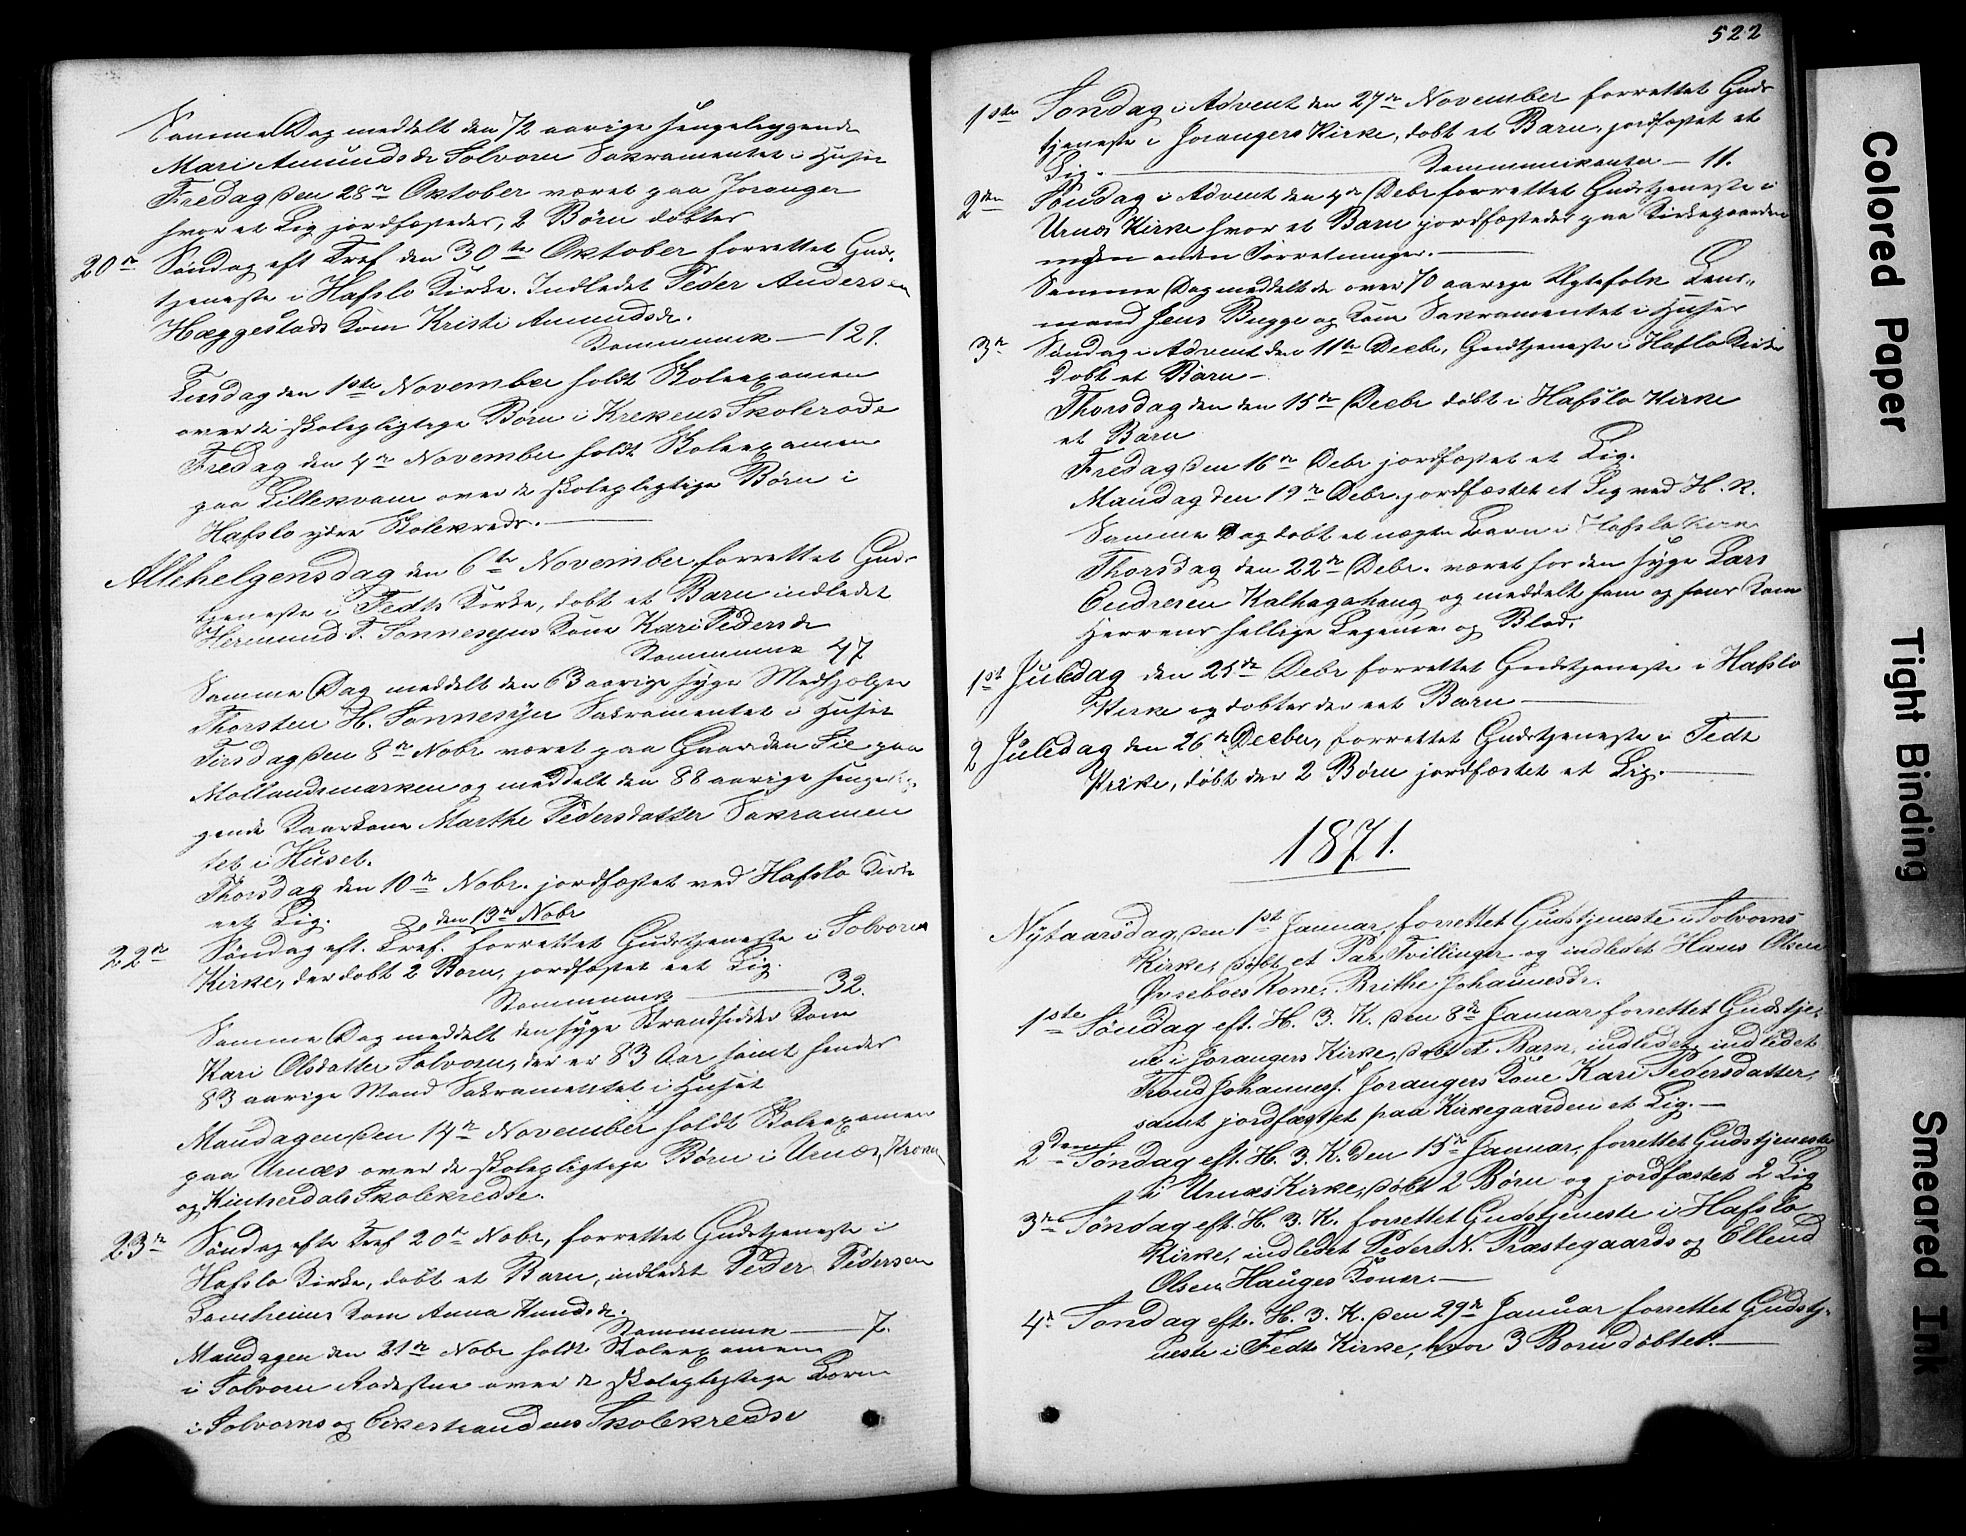 Samme Dag meddelt den 72 aarige sengeliggende
Mari Amundsdr Solvorn Sakramentet i Huset
Fredag den 28de Oktober været paa Joranger
hvor et Lig jordfæstedes, 2 Børn døbtes
20de Søndag eft Tref den 30te Oktober forrettet Guds
tjeneste i Hafslo Kirke. Indledet Peder Andersen
Hæggestads Kone Kristi Amundsdr.
Kommunik — 121.
Tirsdag den 1ste November holdt Skoleexamen
over de skolepligtige Børn i Krekens Skolerode
Fredag den 4de November holdt Skoleexamen
paa Lillekvam over de skolepligtige Børn i
Hafslo ydre Skolekreds. —
Allehelgensdag den 6te November forrettet Gud-
tjeneste i Fedts Kirke, døbt et Barn indledet
Hirmund T. Sønnesyns Kone Kari Pedersdr
Kommunik 47
Samme Dag meddelt den 63 aarige syge Medhjælper
Thorsten H. Sønnesyn Sakramentet i Huset
Tirsdag den 8de Nobr været paa Gaarden Sie paa
Mollandsmarken og meddelt den 88 aarige sengelig-
gende Kaarkone Marthe Pedersdatter Sakramen
tet i Huset.
Thorsdag den 10de Nobr. jordfæstet ved Hafslo Kirke
eet Lig.
den 13de Nobr
22de Søndag eft. Tref. forrettet Gudstjeneste i Solvorn
Kirke, der døbt 2 Børn, jordfæstet eet Lig.
Kommunik — 32.
Samme Dag meddelt den syge Strandsidder Kone
Kari Olsdatter Solvorn, der er 83 Aar samt hendes
83 aarige Mand Sakramentet i Huset
Mandagen den 14de November holdt Skoleexamen
paa Urnæs over de skolepligtige Børn i Urnæs, Kroken
og Kinserdals Skolekredse.
23de Søndag efter Tref 20de Nobr, forrettet Gudstjeneste i
Hafslo Kirke, døbt et Barn, indledet Peder Pedersen
Lomheims Kone Anna Knudsdr.
Kommunik — 7.
Mandagen den 21de Nobr holdt Skoleexamen
i Solvorn over de skolepligtige Børn
i Solvorns og Eikestrandens Skolekredse
522
1ste Søndag i Advent den 27de November forrettet Guds
tjeneste i Jorangers Kirke, døbt et Barn, jordfæstet et
Lig. — Kommunikanter — 11.
2den Søndag i Advent den 4de Debr forrettet Gudstjeneste i
Urnæs Kirke hvor et Barn jordfæstedes paa Kirkegaarden
ingen anden Forretninger. —
Samme Dag meddelt de over 70 aarige Ægtefolk Lens-
mand Jens Bugge og Kone Sakramentet i Huset
3de Søndag i Advent den 11te Decbr, Gudstjeneste i Hafslo Kirke
døbt et Barn —
Thorsdag den den 15de Decbr døbt i Hafslo Kirke
et Barn
Fredag den 16de Debr jordfæstet et Lig.
Mandag den 19de Debr. jordfæstet et Lig ved H. K.
Samme Dag døbt et uægte Barn i Hafslo Kirke
Thorsdag den 22de Debr. været hos den syge Lars
Endresen Kalhagahaug og meddelt ham og hans Kone
Herrens hellige Legeme og Blod.
1st Juledag den 25de Debr forrettet Gudstjeneste i Hafslo
Kirke og døbtes der eet Barn —
2 Juledag den 26de Decber, forrettet Gudstjeneste i Fedt
Kirke, døbt der 2 Børn jordfæstet et Lig. —
1871.
Nytaarsdag, den 1st Januar, forrettet Gudstjeneste i Solvorns
Kirke, døbt et Par Tvillinger og indledet Hans Olsen
Øvrebøes Kone, Brithe Johannesdr.
1ste Søndag eft. H. 3. K. den 8de Januar forrettet Gudstje-
ne i Jorangers Kirke, døbt et Barn, indledet, indledet
Trond Johanness. Jorangers Kone Kari Pedersdatter,
samt jordfæstet paa Kirkegaarden et Lig. —
2den Søndag eft. H. 3. K. den 15de Januar, forrettet Gudstjeneste
i Urnæs Kirke, døbt 2 Børn og jordfæstet 2 Lig
3de Søndag eft. H. 3. K. forrettet Gudstjeneste i Hafslo
Kirke, indledet Peder N. Præstegaards og Ellend
Olsen Hauges Koner. —
4de Søndag eft. H. 3. K. den 29de Januar forrettet Gudstj-
neste i Fedts Kirke, hvor 3 Børn døbtes. —
Colored Paper
Tight Binding
Smeared Ink